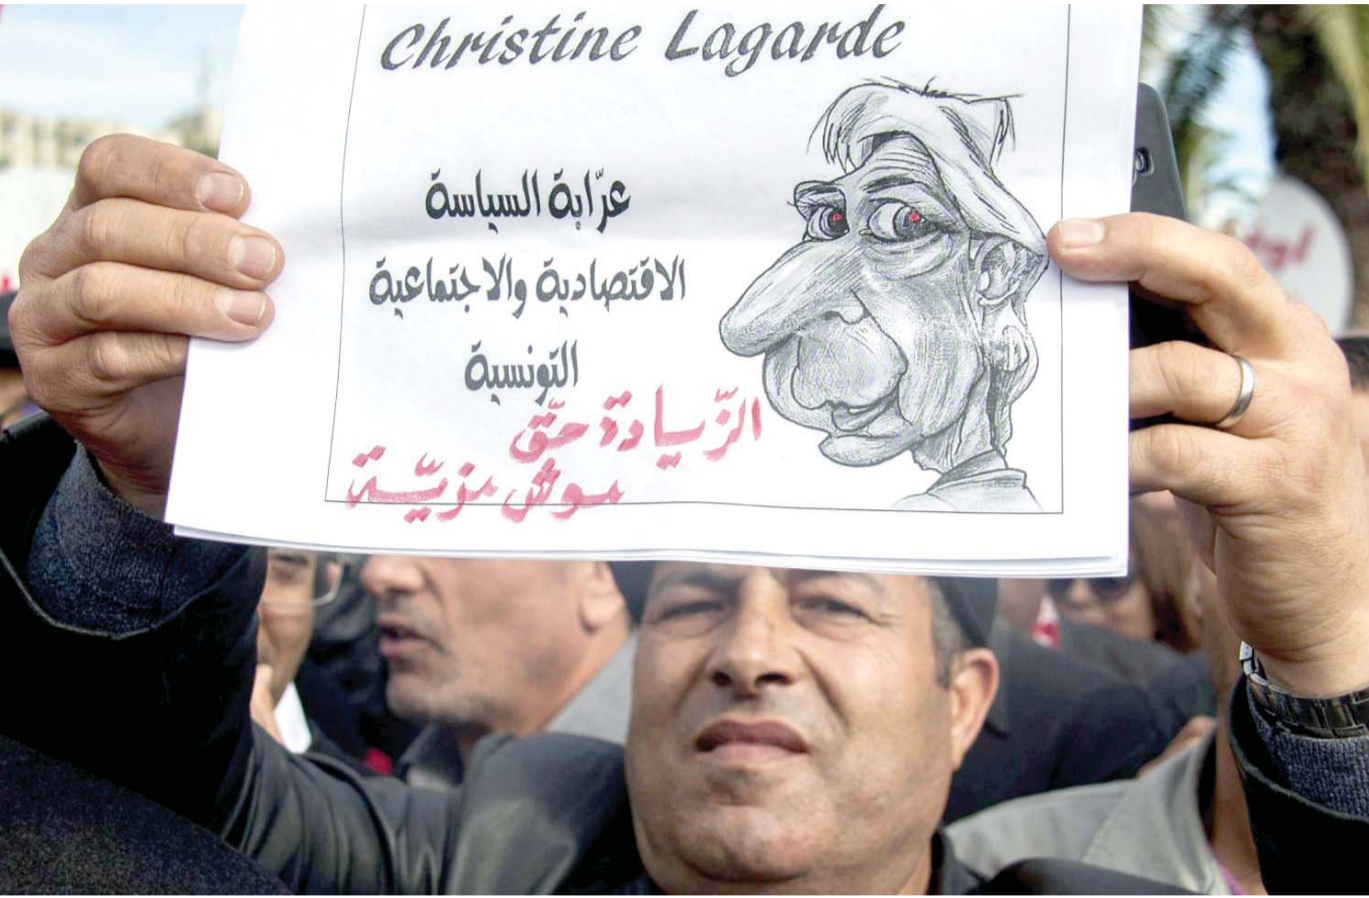 Christine Lagarde
عرّابة السياسة
الاقتصادية والاجتماعية
التونسية
الزّيادة حقّ
موش مزيّة